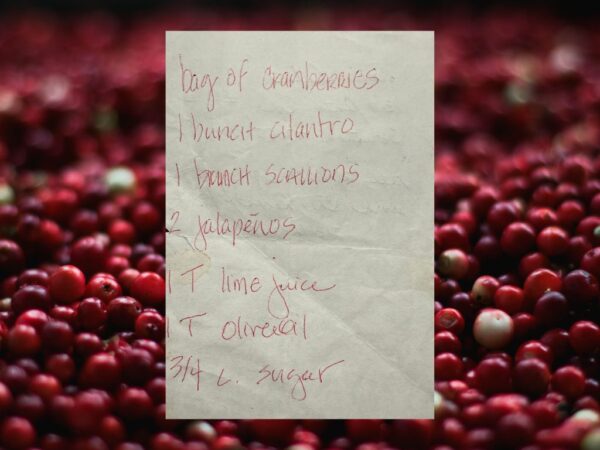 bag of cranberries
1 bunch cilantro
1 bunch scallions
2 jalapeños
1 T lime juice
1 T olive oil
3/4 c. sugar